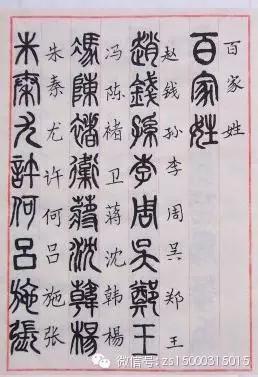 百家姓
百家姓
赵钱孙李周吴郑王
趙錢孫李周吳鄭王
冯陈褚卫蒋沈韩楊
馮陳褚衛蔣沈韓楊
朱秦尤许何吕施张
朱秦尤許何呂施張
微信号: zs15000315015